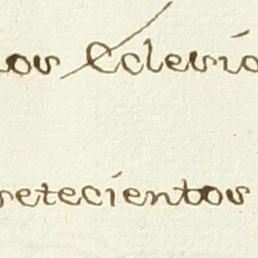 los Eclesia
setecientos